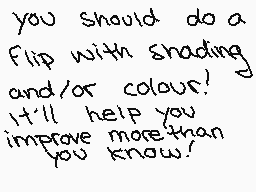 you should do a
flip with shading
and/or colour!
it'll help you
improve more than
you know!